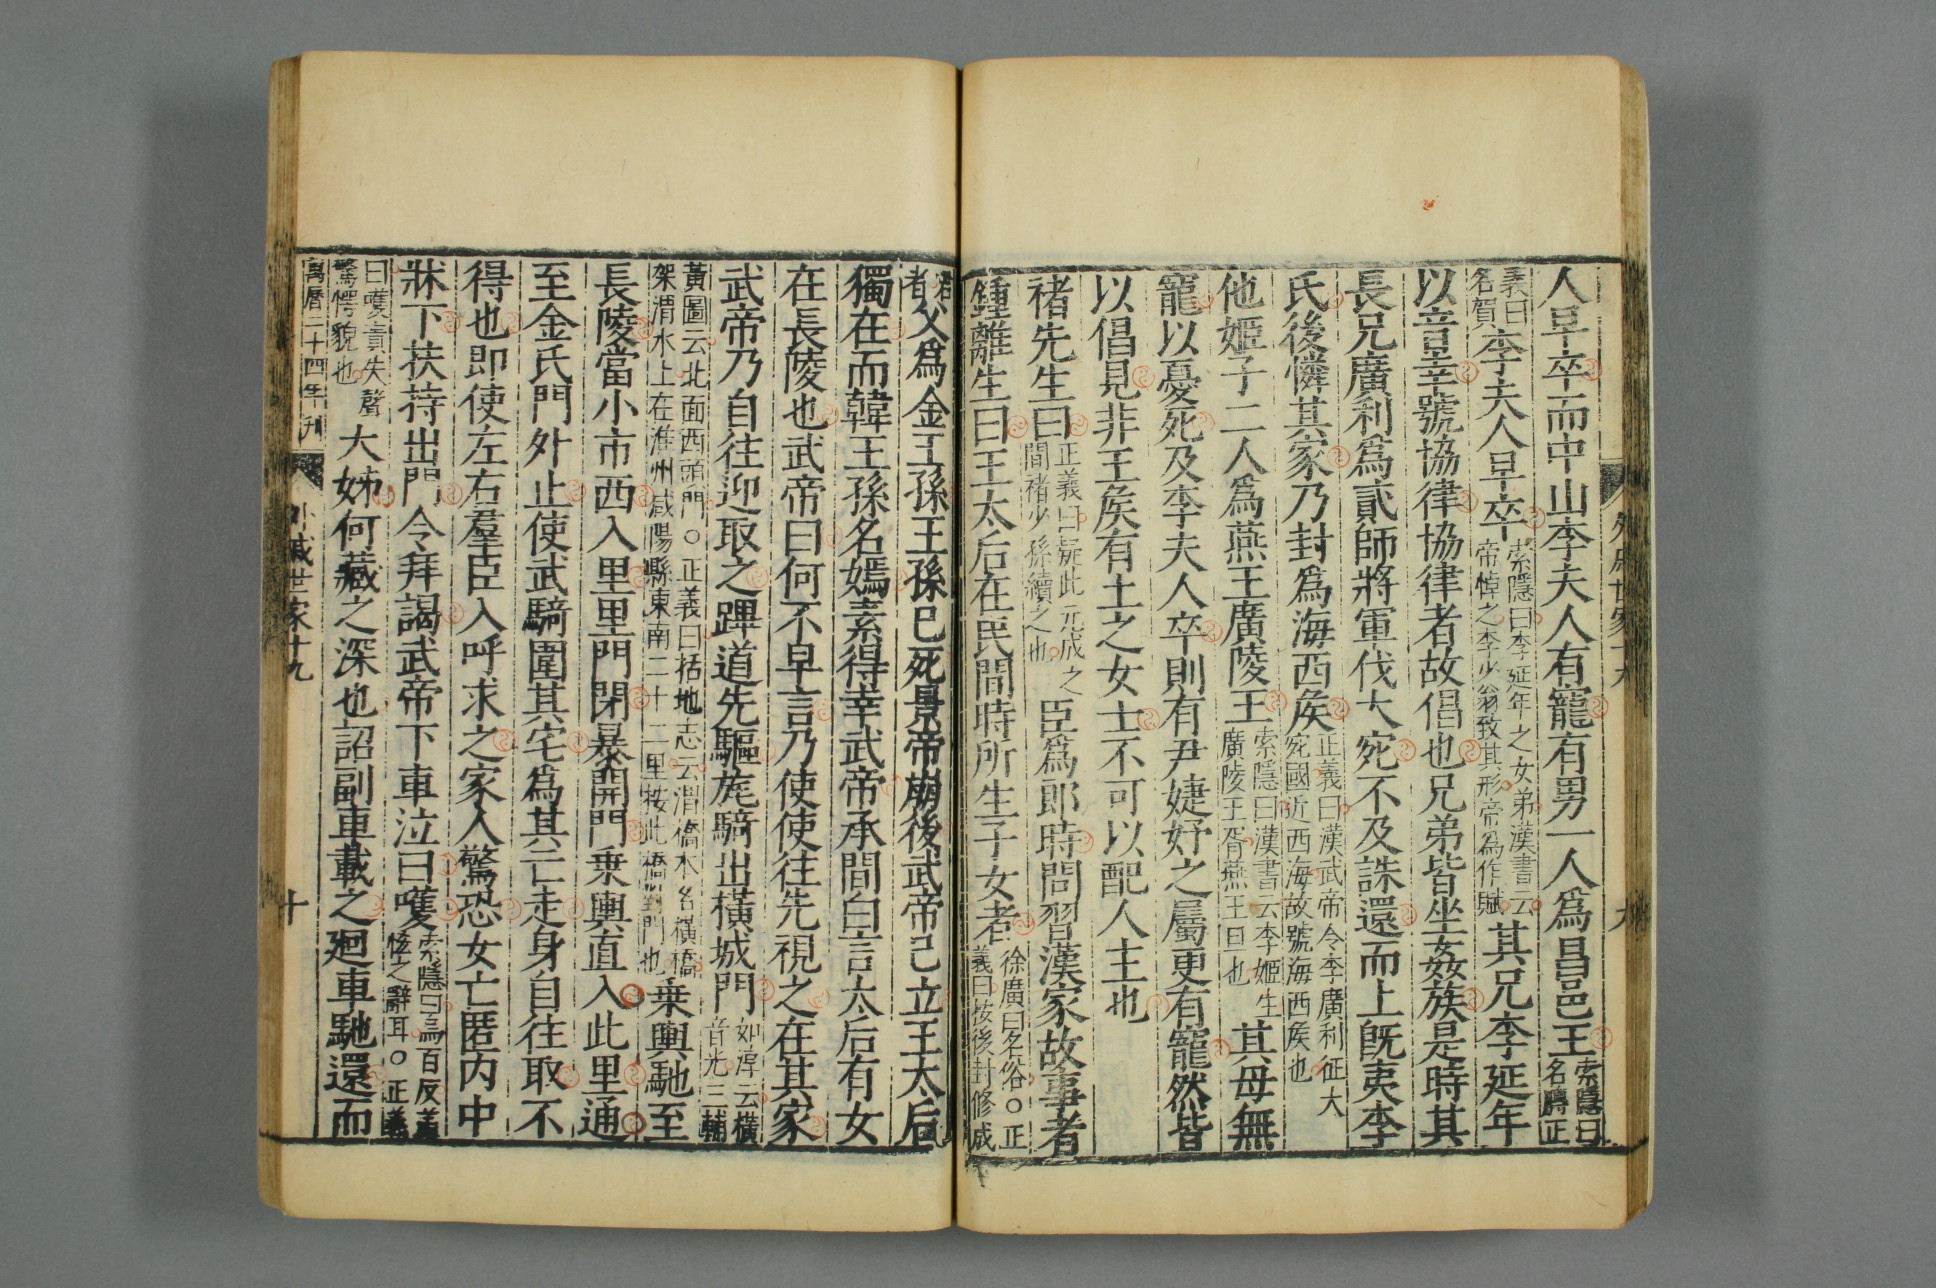 人早卒而中山李夫人有寵有男一人爲昌邑王索隱曰名髆正
義曰名賀李夫人早卒索隱曰李延年之女弟漢書云帝悼之李少翁致其形帝爲作賦其兄李延年
以音幸號協律協律者故倡也兄弟皆坐姦族是時其
長兄廣利爲貳師將軍伐大宛不及誅還而上旣夷李
氏後憐其家乃封爲海西矦正義曰漢武帝令李廣利征大宛國近西海故號海西矦也
他姬子二人爲燕王廣陵王索隱曰漢書云李姬生廣陵王胥燕王旦也其母無
寵以憂死及李夫人卒則有尹婕妤之屬更有寵然皆
以倡見非王矦有土之女士不可以配人主也
褚先生曰正義曰疑此元成之間褚少孫續之也臣爲郎時問習漢家故事者
鍾離生曰王太后在民間時所生子女者徐廣曰名俗○正義曰按後封修成
君者父爲金王孫王孫已死景帝崩後武帝已立王太后
獨在而韓王孫名嫣素得幸武帝承間白言太后有女
在長陵也武帝曰何不早言乃使使往先視之在其家
武帝乃自往迎取之蹕道先驅旄騎出橫城門如淳云橫音光三輔
黃圖云北面西頭門○正義曰括地志云渭橋本名橫橋架渭水上在雍州咸陽縣東南二十二里按此橋對門也乗輿馳至
長陵當小市西入里里門閉暴開門乗輿直入此里通
至金氏門外止使武騎圍其宅爲其亡走身自往取不
得也即使左右羣臣入呼求之家人驚恐女亡匿內中
牀下扶持出門令拜謁武帝下車泣曰嚄索隱曰烏百反蓋怪之辭耳○正義
曰嚄責失聲驚愕貌也大姊何藏之深也詔副車載之廻車馳還而
萬曆二十四年刊
外戚世家十九
十
外戚世家十九
九